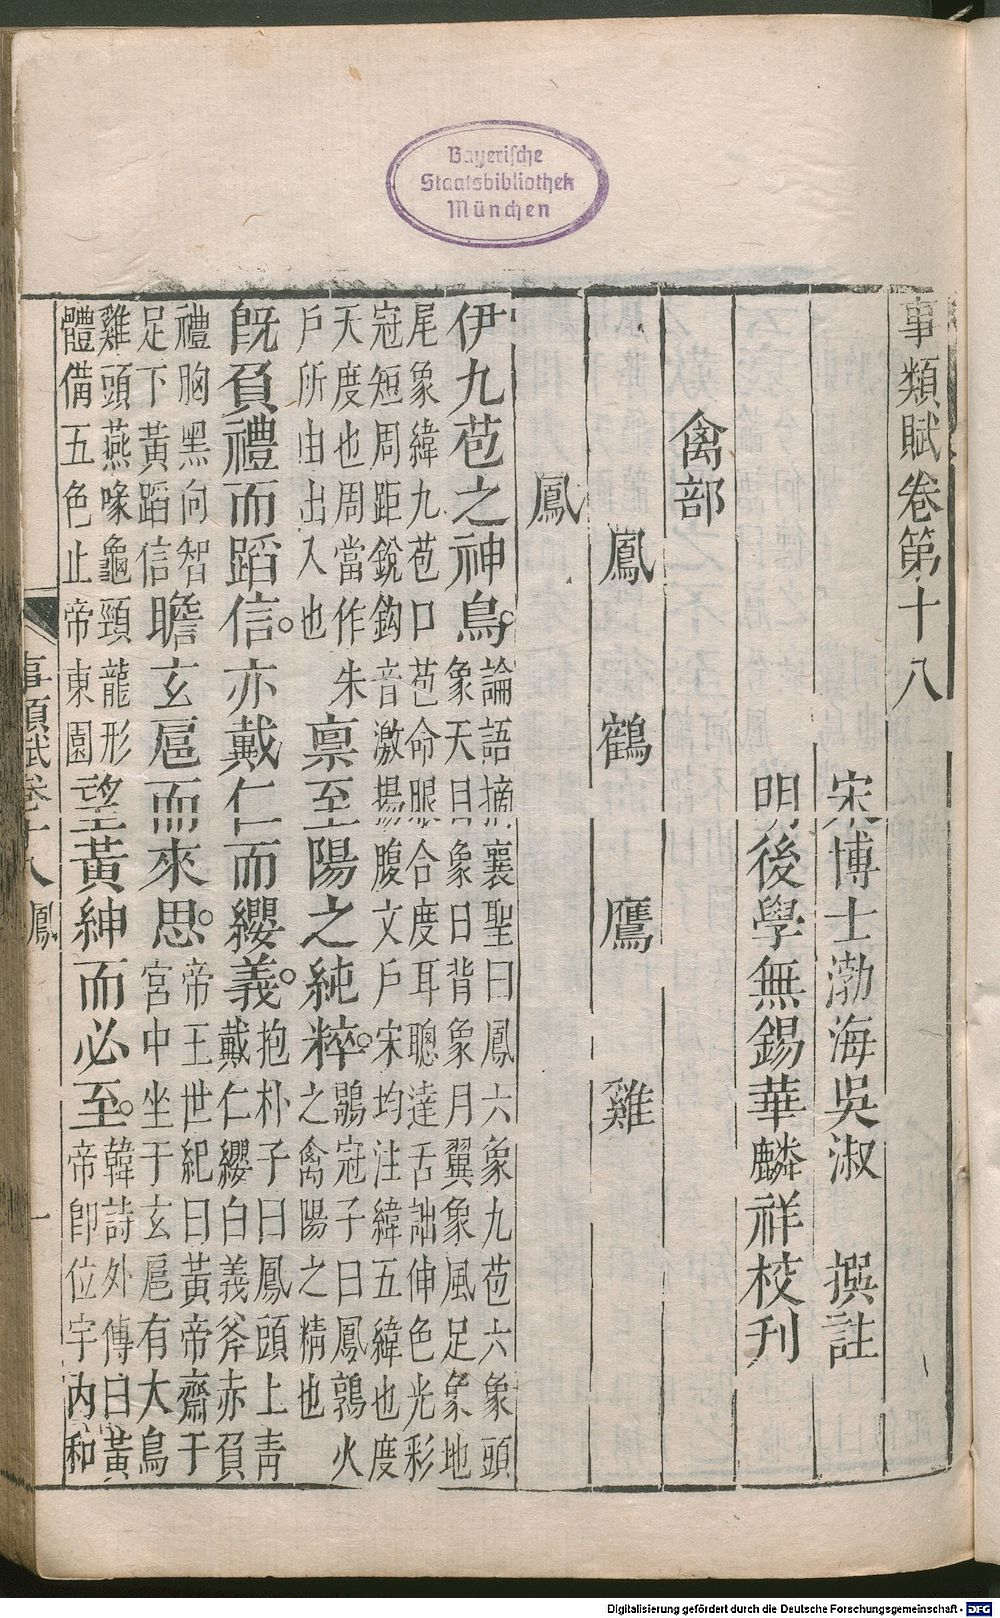 Bayerische
Staatsbibliothek
München
事類賦卷第十八
宋博士渤海吳淑 撰註
明後學無錫華麟祥校刊
禽部
鳳 鶴 鷹 雞
鳳
伊九苞之神鳥。論語摘襄聖曰鳳六象九苞六象頭象天目象日背象月翼象風足象地
尾象緯九苞口苞命眼合度耳聰達舌詘伸色光彩冠短周距銳鈎音激揚腹文戶宋均注緯五緯也度
天度也周當作朱戶所由出入也禀至陽之純粹。鶡冠子曰鳳鶉火之禽陽之精也
旣負禮而蹈信。亦戴仁而纓義。抱朴子曰鳳頭上青戴仁纓白義斧赤負
禮胸黑向智足下黃蹈信瞻玄扈而來思。帝王世紀曰黃帝齋于宮中坐于玄扈有大鳥
雞頭燕喙龜頸龍形體備五色止帝東園望黃紳而必至。韓詩外傳曰黃帝卽位宇內和
事類賦卷十八 鳳 一
Digitalisierung gefördert durch die Deutsche Forschungsgemeinschaft - DFG